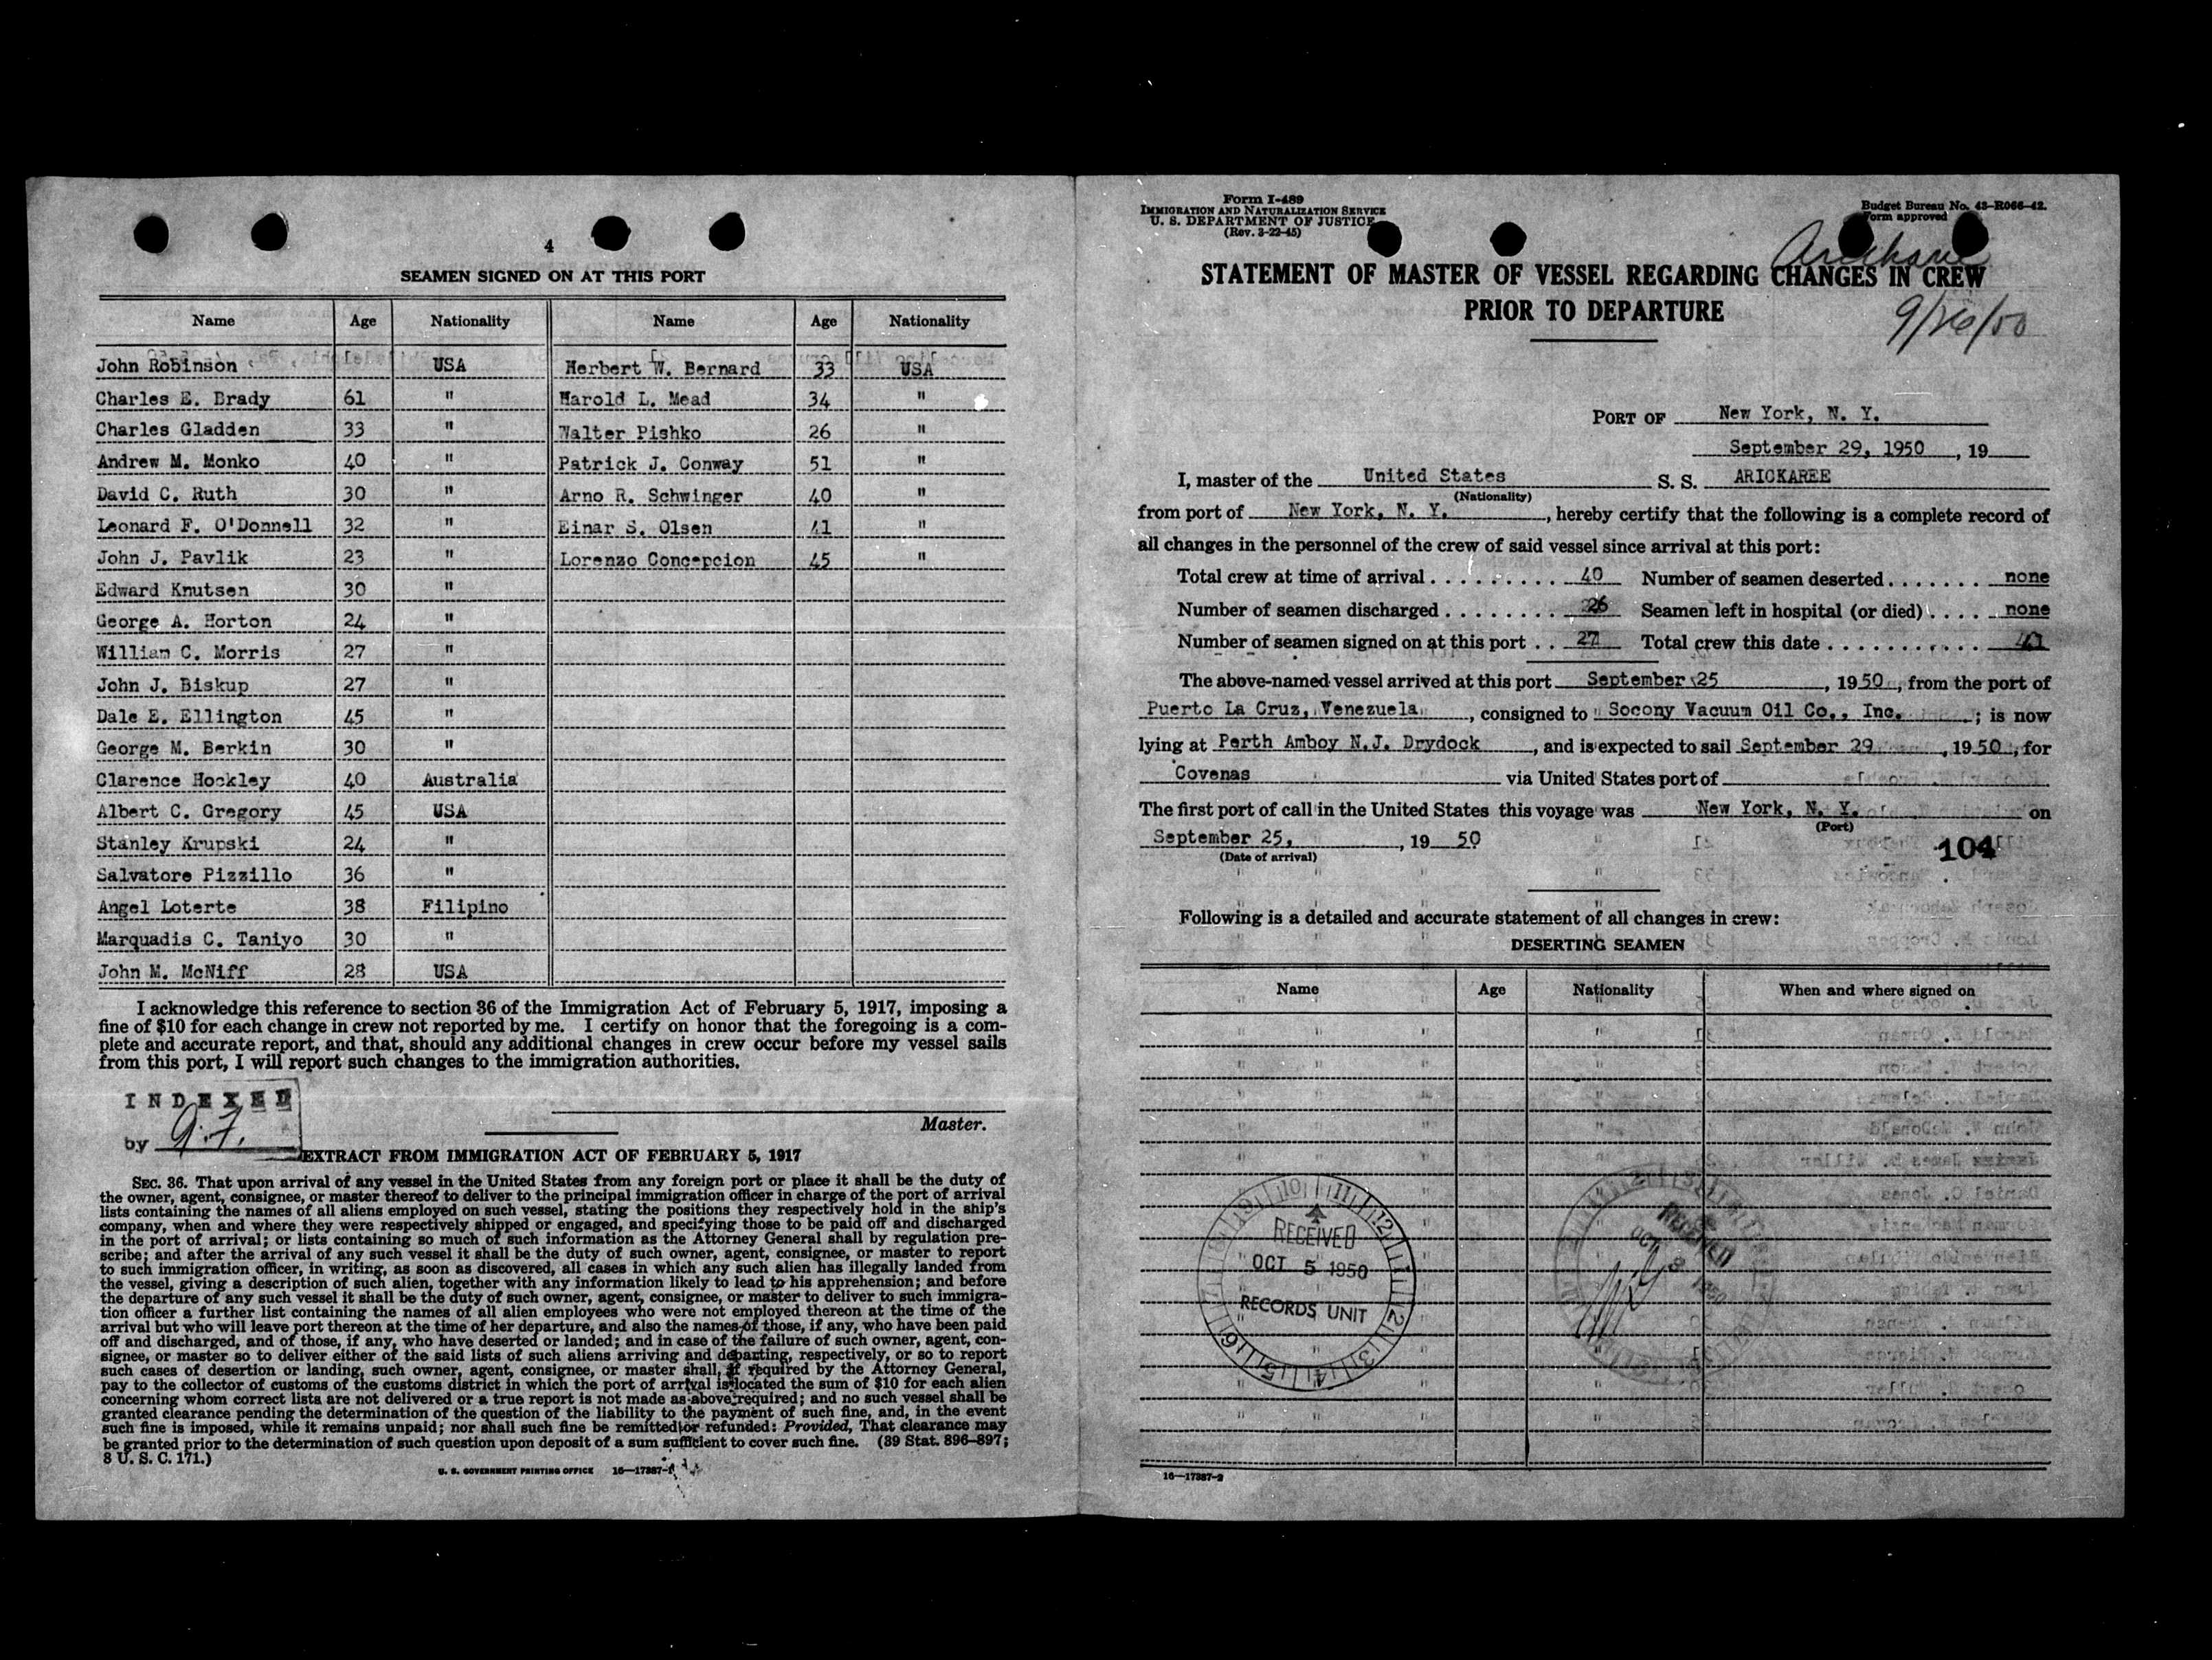 4
SEAMEN SIGNED ON AT THIS PORT
Name Age Nationality Name Age Nationality
John Robinson USA Herbert W. Bernard 33 USA
Charles E. Brady 61 " Harold L. Mead 34 "
Charles Gladden 33 " Walter Pishko 26 "
Andrew M. Monko 40 " Patrick J. Conway 51 "
David C. Ruth 30 " Arno R. Schwinger 40 "
Leonard F. O'Donnell 32 " Einar S. Olsen 41 "
John J. Pavlik 23 " Lorenzo Concepcion 45 "
Edward Knutsen 30 "
George A. Horton 24 "
William C. Morris 27 "
John J. Biskup 27 "
Dale E. Ellington 45 "
George M. Berkin 30 "
Clarence Hockley 40 Australia
Albert C. Gregory 45 USA
Stanley Krupski 24 "
Salvatore Pizzillo 36 "
Angel Loterte 38 Filipino
Marquadis C. Taniyo 30 "
John M. McNiff 28 USA
I acknowledge this reference to section 36 of the Immigration Act of February 5, 1917, imposing a
fine of $10 for each change in crew not reported by me. I certify on honor that the foregoing is a com-
plete and accurate report, and that, should any additional changes in crew occur before my vessel sails
from this port, I will report such changes to the immigration authorities.
INDEXED
by
Master.
EXTRACT FROM IMMIGRATION ACT OF FEBRUARY 5, 1917
SEC. 36. That upon arrival of any vessel in the United States from any foreign port or place it shall be the duty of
the owner, agent, consignee, or master thereof to deliver to the principal immigration officer in charge of the port of arrival
lists containing the names of all aliens employed on such vessel, stating the positions they respectively hold in the ship's
company, when and where they were respectively shipped or engaged, and specifying those to be paid off and discharged
in the port of arrival; or lists containing so much of such information as the Attorney General shall by regulation pre-
scribe; and after the arrival of any such vessel it shall be the duty of such owner, agent, consignee, or master to report
to such immigration officer, in writing, as soon as discovered, all cases in which any such alien has illegally landed from
the vessel, giving a description of such alien, together with any information likely to lead to his apprehension; and before
the departure of any such vessel it shall be the duty of such owner, agent, consignee, or master to deliver to such immigra-
tion officer a further list containing the names of all alien employees who were not employed thereon at the time of the
arrival but who will leave port thereon at the time of her departure, and also the names of those, if any, who have been paid
off and discharged, and of those, if any, who have deserted or landed; and in case of the failure of such owner, agent, con-
signee, or master so to deliver either of the said lists of such aliens arriving and departing, respectively, or so to report
such cases of desertion or landing, such owner, agent, consignee, or master shall, if required by the Attorney General,
pay to the collector of customs of the customs district in which the port of arrival is located the sum of $10 for each alien
concerning whom correct lists are not delivered or a true report is not made as above required; and no such vessel shall be
granted clearance pending the determination of the question of the liability to the payment of such fine, and, in the event
such fine is imposed, while it remains unpaid; nor shall such fine be remitted or refunded: Provided, That clearance may
be granted prior to the determination of such question upon deposit of a sum sufficient to cover such fine. (39 Stat. 896-897;
8 U. S. C. 171.)
U. S. GOVERNMENT PRINTING OFFICE 16—17387-1
Form I-489
IMMIGRATION AND NATURALIZATION SERVICE
U. S. DEPARTMENT OF JUSTICE
(Rev. 3-22-45)
Budget Bureau No. 43-R066-42.
Form approved
STATEMENT OF MASTER OF VESSEL REGARDING CHANGES IN CREW
PRIOR TO DEPARTURE
9/26/50
PORT OF New York, N. Y.
September 29, 1950, 19
I, master of the United States S. S. ARICKAREE
(Nationality)
from port of New York, N. Y., hereby certify that the following is a complete record of
all changes in the personnel of the crew of said vessel since arrival at this port:
Total crew at time of arrival 40 Number of seamen deserted none
Number of seamen discharged 26 Seamen left in hospital (or died) none
Number of seamen signed on at this port 27 Total crew this date 41
The above-named vessel arrived at this port September 25, 1950, from the port of
Puerto La Cruz, Venezuela, consigned to Socony Vacuum Oil Co., Inc.; is now
lying at Perth Amboy N.J. Drydock, and is expected to sail September 29, 1950, for
Covenas via United States port of
The first port of call in the United States this voyage was New York, N. Y. on
(Port)
September 25, 19 50
(Date of arrival)
104
Following is a detailed and accurate statement of all changes in crew:
DESERTING SEAMEN
Name Age Nationality When and where signed on
RECEIVED
OCT 5 1950
RECORDS UNIT
RECEIVED
OCT 3 1950
16—17387-2